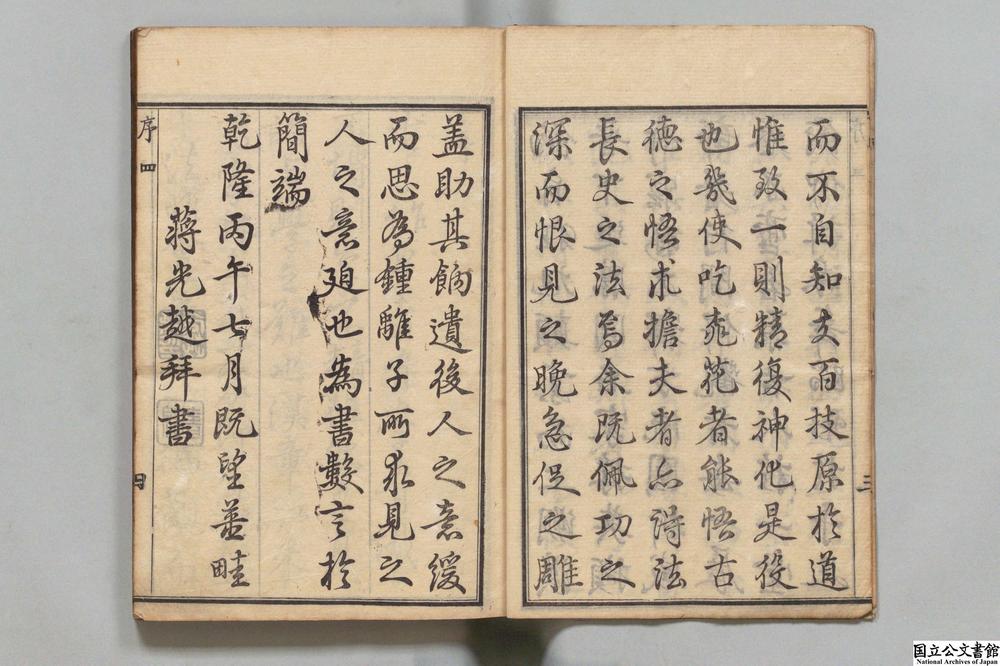 而不自知夫百技原於道
惟致一則精復神化是役
也幾使吃菸萢者能悟古
德之悟求擔夫者亦得法
長史之法焉余既佩功之
深而恨見之晚急促之雕
蓋助其餉遺後人之意緩
而思為鍾離子所求見之
人之意迫也為書數言於
簡端
乾隆丙午七月既望蓋畦
蔣光越拜書
序 四
三
国立公文書館
National Archives of Japan